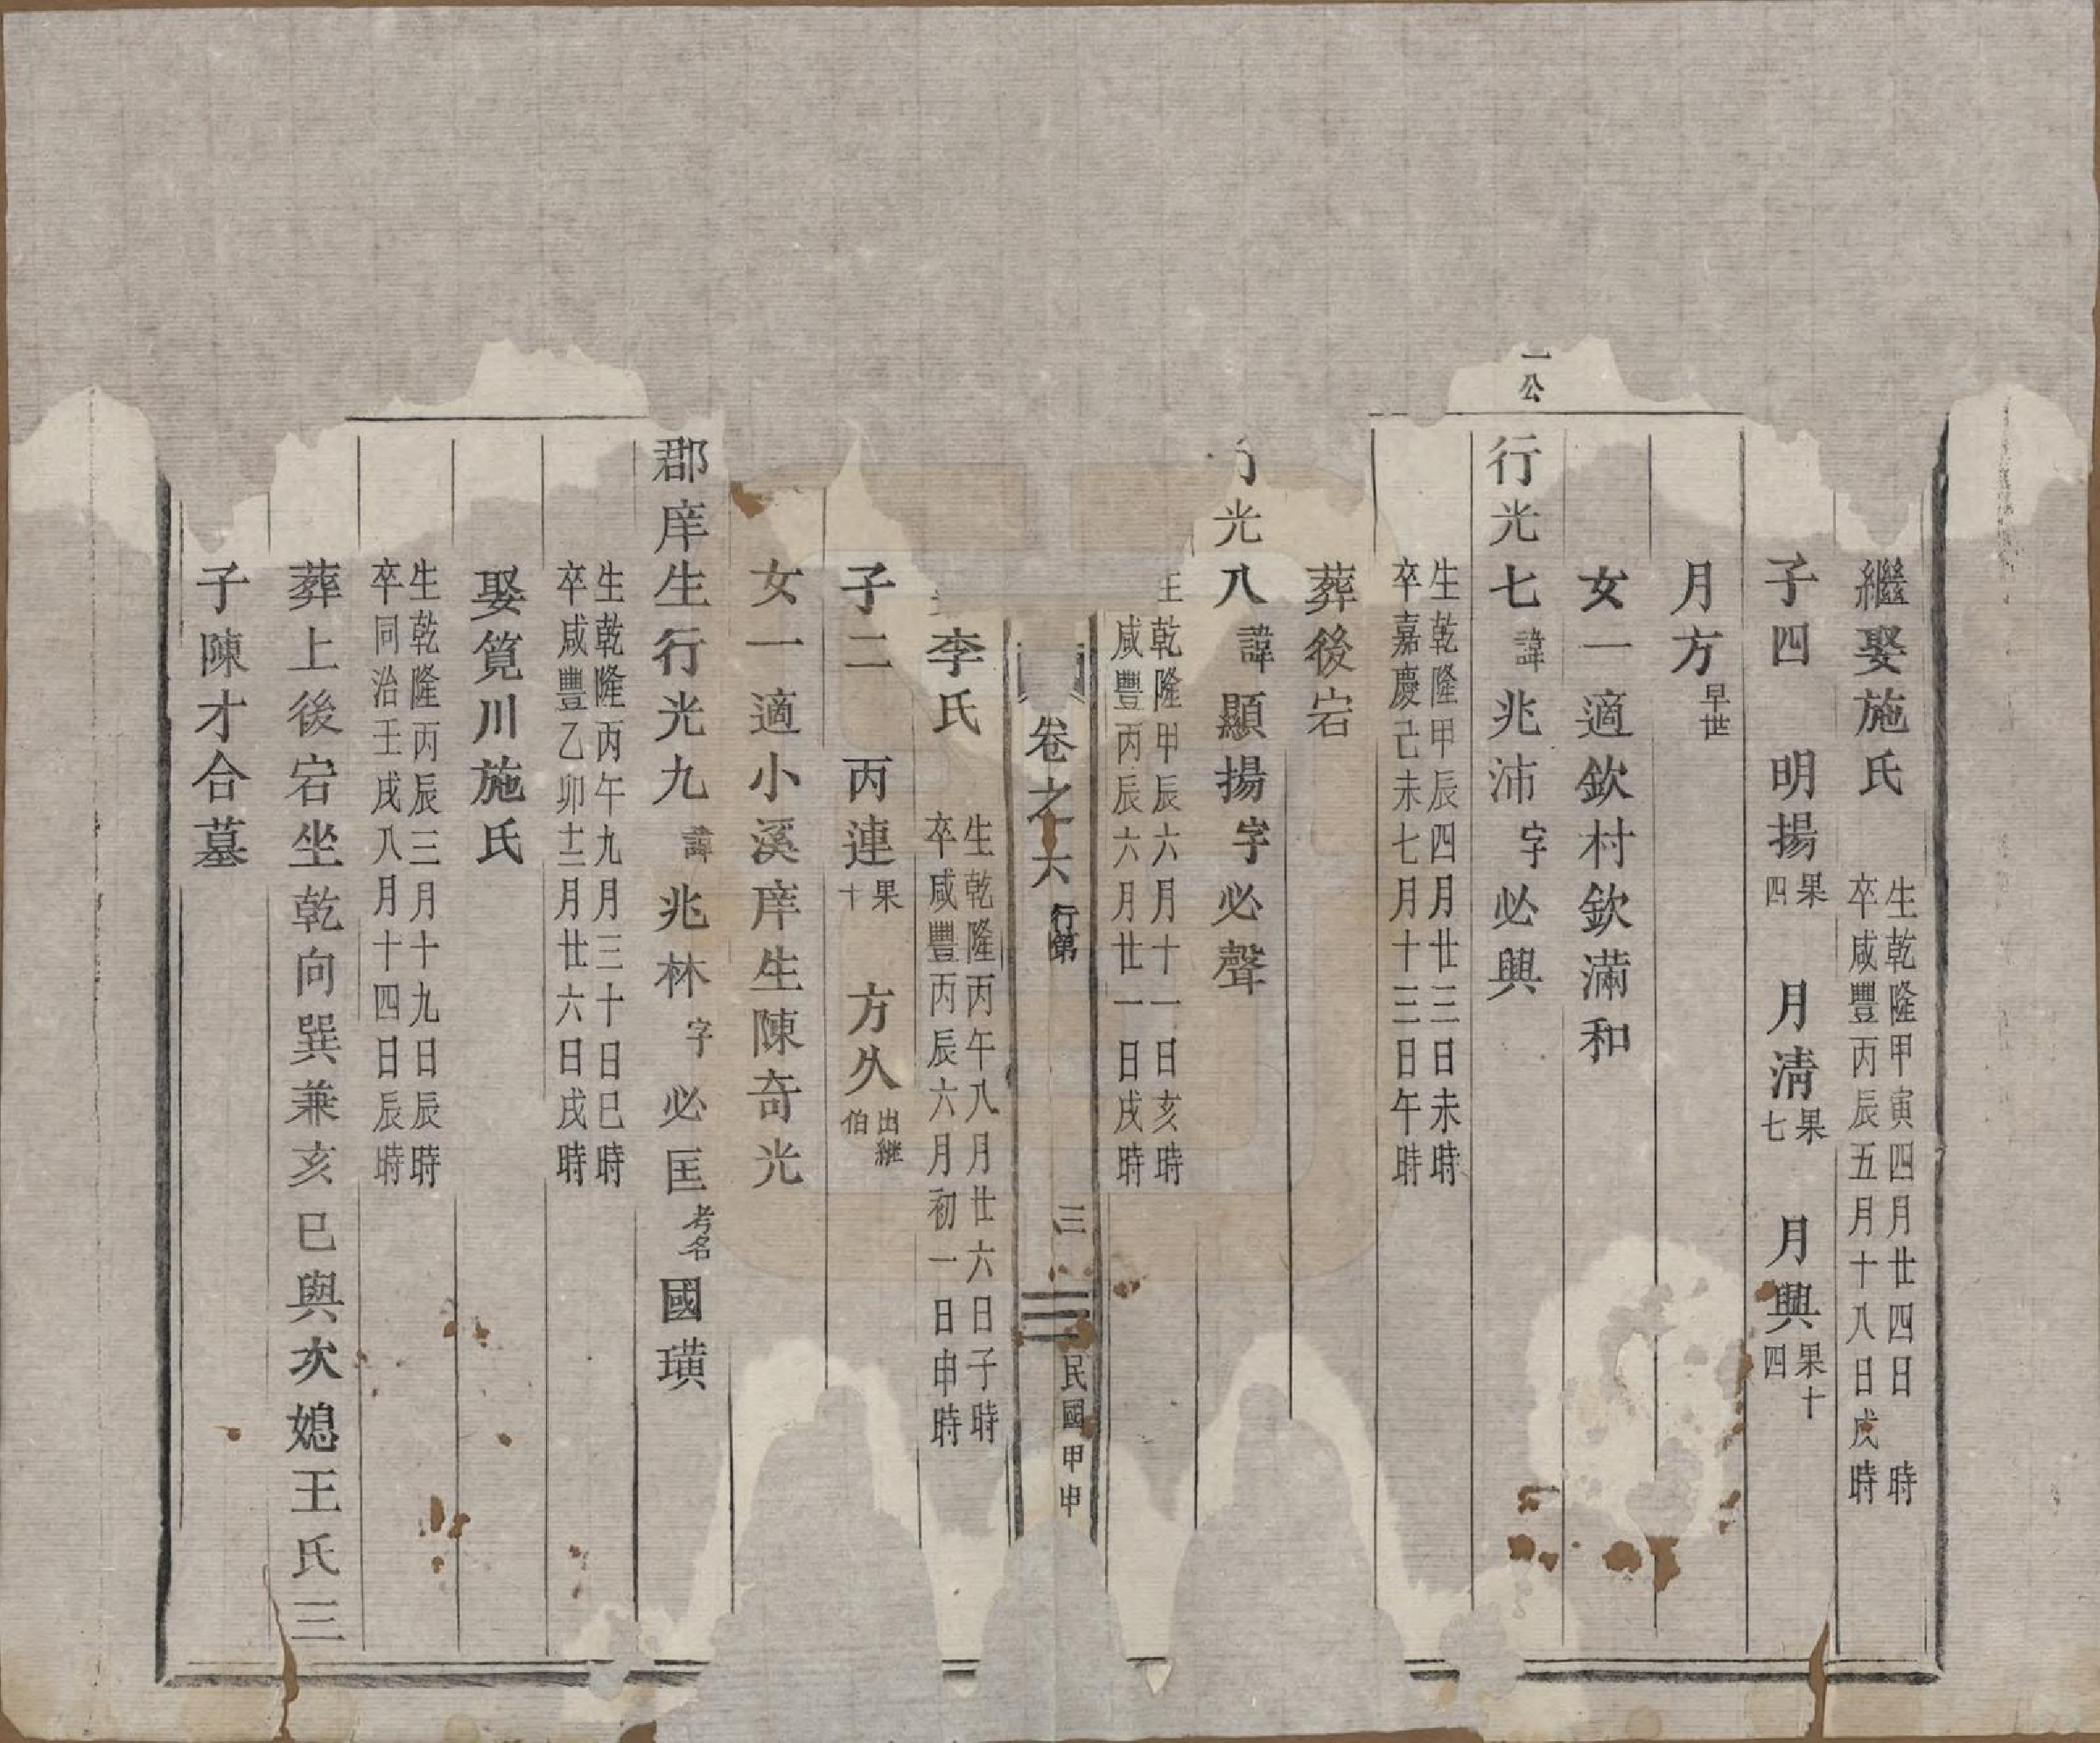 繼娶施氏
生乾隆甲寅四月廿四日 時
卒咸豐丙辰五月十八日戌時
子四 明揚果四 月清果七 月興果十四
月方早世
女一適欽村欽滿和
一公
行光七諱兆沛字必興
生乾隆甲辰四月廿三日未時
卒嘉慶己未七月十三日午時
葬後宕
光八諱顯揚字必聲
生乾隆甲辰六月十一日亥時
咸豐丙辰六月廿一日戌時
卷之六 行第 三 民國甲申
李氏
生乾隆丙午八月廿六日子時
卒咸豐丙辰六月初一日申時
子二 丙連果十 方久出繼伯
女一適小溪庠生陳奇光
郡庠生行光九諱兆林字必匡考名國璜
生乾隆丙午九月三十日巳時
卒咸豐乙卯十二月廿六日戌時
娶筧川施氏
生乾隆丙辰三月十九日辰時
卒同治壬戌八月十四日辰時
葬上後宕坐乾向巽兼亥巳與次媳王氏三
子陳才合墓